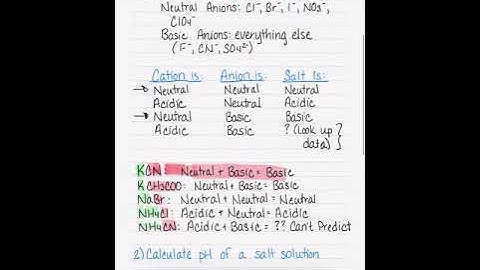 Neutral Anions: Cl⁻, Br⁻, I⁻, NO₃⁻,
ClO₄⁻
Basic Anions: everything else
(F⁻, CN⁻, SO₄²⁻)
Cation is: Anion is: Salt is:
→ Neutral Neutral Neutral
Acidic Neutral Acidic
→ Neutral Basic Basic
Acidic Basic ? (Look up
data)
KCN: Neutral + Basic = Basic
KCH₃COO: Neutral + Basic = Basic
NaBr: Neutral + Neutral = Neutral
NH₄Cl: Acidic + Neutral = Acidic
NH₄CN: Acidic + Basic = ?? Can't Predict
2) Calculate pH of a salt solution